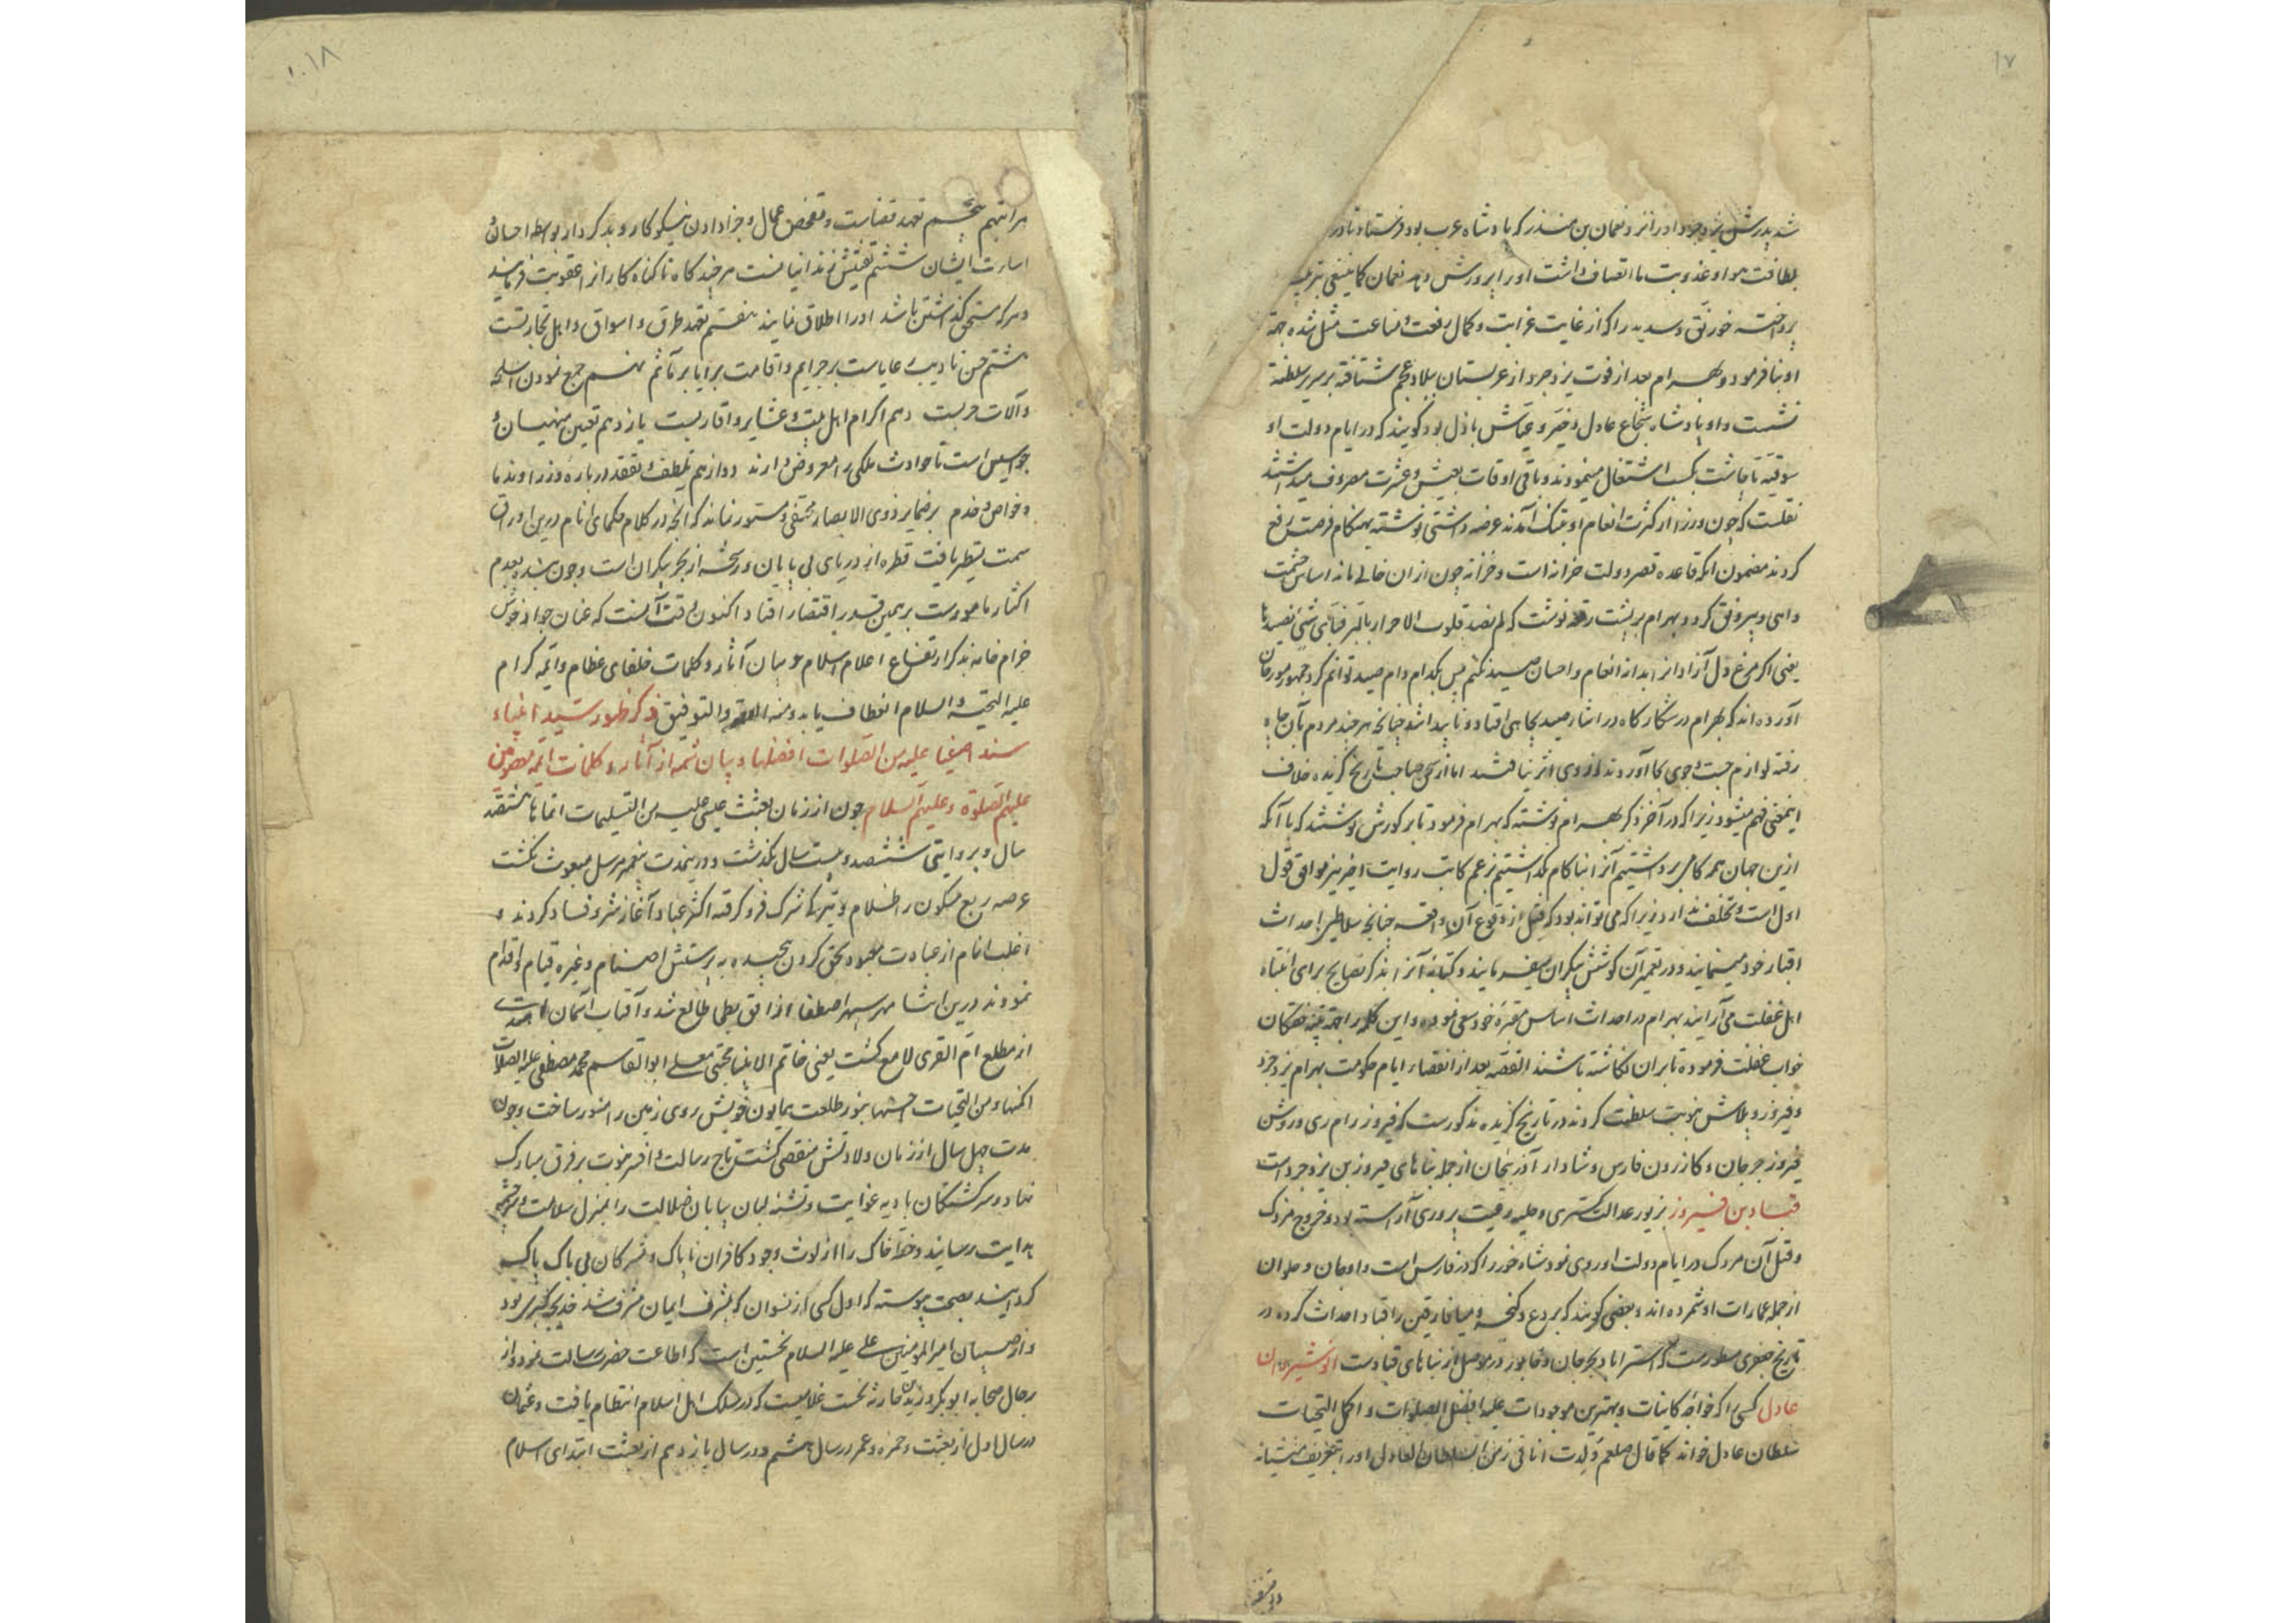 ۱۷
شد پدرش یزدجرد او را نزد نعمان بن منذر که پادشاه عرب بود فرستاد تا در
بلطافت هوا و عذوبت ما اتصاف داشت او را پرورش دهد نعمان کما ینبغی بتربیت
پرداخته خورنق و سدیر را که از غایت غرابت و کمال رفعت و مناعت مثل شده جهة
او بنا فرمود و بهرام بعد از فوت یزدجرد از عربستان ببلاد عجم شتافته بر سریر سلطنة
نشست و او پادشاه شجاع عادل و خیر و عیاش باذل بود گویند که در ایام دولت او
سوقیه تا چاشت بکسب اشتغال مینمودند و باقی اوقات بعیش و عشرت مصروف میداشتند
نقلست که چون وزرا از کثرت انعام او بتنک آمدند عرضه داشتی نوشته بهنکام فرصت رفع
کردند مضمون آنکه قاعده قصر دولت خزانه است و خزانه چون از ان خالی ماند اساس حشمت
واهی و بیرونق کردد بهرام بر پشت رقعه نوشت که لم نصد قلوب الاحرار بالبر فبای شیٔ نصیدها
یعنی اکر مرغ دل آزادانرا بدانه انعام و احسان صید نکنم پس بکدام دام صید توانم کرد جمهور مورخان
آورده اند که بهرام در شکارکاه در اثناء صید بچاهی افتاد و ناپیدا شد چنانچه هر چند مردم بآن چاه
رفته لوازم جست و جوی بجا آوردند از وی اثر نیافتند اما از سخن صاحب تاریخ کزیده خلاف
اینمعنی فهم میشود زیرا که در آخر ذکر بهرام نوشته که بهرام فرمود تا بر کورش نوشتند که با آنکه
ازین جهان همه کامی برداشتیم آنرا بناکام بکذاشتیم بزعم کاتب روایت اخیر نیز موافق قول
اول است و تخلف ندارد زیرا که می تواند بود که قبل از وقوع آن واقعه چنانچه سلاطین احداث
اقبار خود مینمایند و در تعمیر آن کوشش بیکران میفرمایند و کتابه آنرا بذکر نصایح برای انتباه
اهل غفلت می آرایند بهرام در احداث اساس مقبرۀ خود سعی نموده و این کلمه را جهة تنبیه خفتکان
خواب غفلت فرموده تا بران نکاشته باشند القصه بعد از انقضاء ایام حکومت بهرام یزدجرد
و فیروز و بلاش بنوبت سلطنت کردند در تاریخ کزیده مذکورست که فیروز رام ری و روشن
فیروز جرجان و کازرون فارس و شادار آذربیجان از جمله بناهای فیروز بن یزدجرد است
قباد بن فیروز بزیور عدالت کستری و حلیه رعیت پروری آراسته بود و خروج مزدک
و قتل آن مردک در ایام دولت او روی نمود شاه خوره را که در فارس است و اوجان و حلوان
از جمله عمارات او شمرده اند و بعضی کویند که بردع و کنجه و میافارقین را قباد احداث کرده در
تاریخ جعفری مسطورست که استراباد جرجان و خابور در موصل از بناهای قبادست انوشیروان
عادل کسی را که خواجه کاینات و بهترین موجودات علیه افضل الصلوات و اکمل التحیات
سلطان عادل خواند کما قال صلعم ولدت انا فی زمن السلطان العادل او را بتعریف منشیانه
۱۸
مراتبهم پنجم تعهد قضاست و تفحص عمال و جزا دادن نیکو کار و بد کردار بواسطه احسان و
اساءت ایشان ششم تفتیش زندانیانست هر چند کاه تا کناه کار را عقوبت فرمایند
و هر که مستحق کذاشتن باشد او را اطلاق نمایند هفتم تعهد طرق و اسواق و اهل تجارتست
هشتم حسن تادیب رعایاست بر جرایم و اقامت برایا بر مآثم نهم جمع نمودن اسلحه
و آلات حربست دهم اکرام اهل بیت و عشایر و اقاربست یازدهم تعیین منهیان و
جواسیس است تا حوادث ملکی را معروض دارند دوازدهم تلطف و تفقد در باره وزرا و ندما
و خواص و خدم بر ضمایر ذوی الابصار مختفی و مستور نماند که انچه در کلام حکمای انام درین اوراق
سمت تسطیر یافت قطره از دریای بی پایان و رشحه از بحر بیکران است و چون بنده بعدم
اکثار ماموروست بر همین قدر اقتصار افتاد اکنون وقت آنست که عنان جواد خوش
خرام خامه بذکر ارتفاع اعلام اسلام و بیان آثار و کلمات خلفای عظام و ائمه کرام
علیه التحیة و السلام انعطاف یابد و منه العون و التوفیق ذکر ظهور سید انبیاء
سند اصفیا علیه من الصلوات افضلها و بیان شمه از آثار و کلمات ائمه معصومین
علیهم الصلوة و علیهم السلام چون از زمان بعثت عیسی علیه من التسلیمات اتمها ششصد
سال و بروایتی ششصد و بیست سال بگذشت و درینمدت پیغمبر مرسل مبعوث نکشت
عرصه ربع مسکون را ظلام و تیرکی شرک فرو کرفته اکثر عباد آغاز شر و فساد کردند و
اغلب انام از عبادت معبود بحق کردن پیچیده به پرستش اصنام و غیره قیام و اقدام
نمودند درین اثنا مهر سپهر اصطفا از افق بطحا طالع شد و آفتاب آسمان
از مطلع ام القری لامع کشت یعنی خاتم الانبیا مجتبی معلی ابو القاسم محمد مصطفی علیه الصلات
اکملها و من التحیات احسنها بنور طلعت همایون خویش روی زمین را منور ساخت و چون
مدت چهل سال از زمان ولادتش منقضی کشت تاج رسالت و افسر نبوت بر فرق مبارک
نهاد و سرکشتکان بادیه غوایت و تشنه لبان بیابان ضلالت را بمنزل سلامت و سرچشمه
هدایت رسانید و خطۀ خاک را از لوث وجود کافران ناپاک و مشرکان بی باک پاک
کردانید بصحت پیوسته که اول کسی از نسوان که بشرف ایمان مشرف شد خدیجه کبری بود
و از صبیان امیر المومنین علی علیه السلام نخستین است که اطاعت حضرت رسالت نمود و از
رجال صحابه ابو بکر و زید بن حارثه نخست غلامیست که در سلک اهل اسلام انتظام یافت و عثمان
در سال اول از بعثت و حمزه و عمر در سال ششم و در سال یازدهم از بعثت ابتدای اسلام